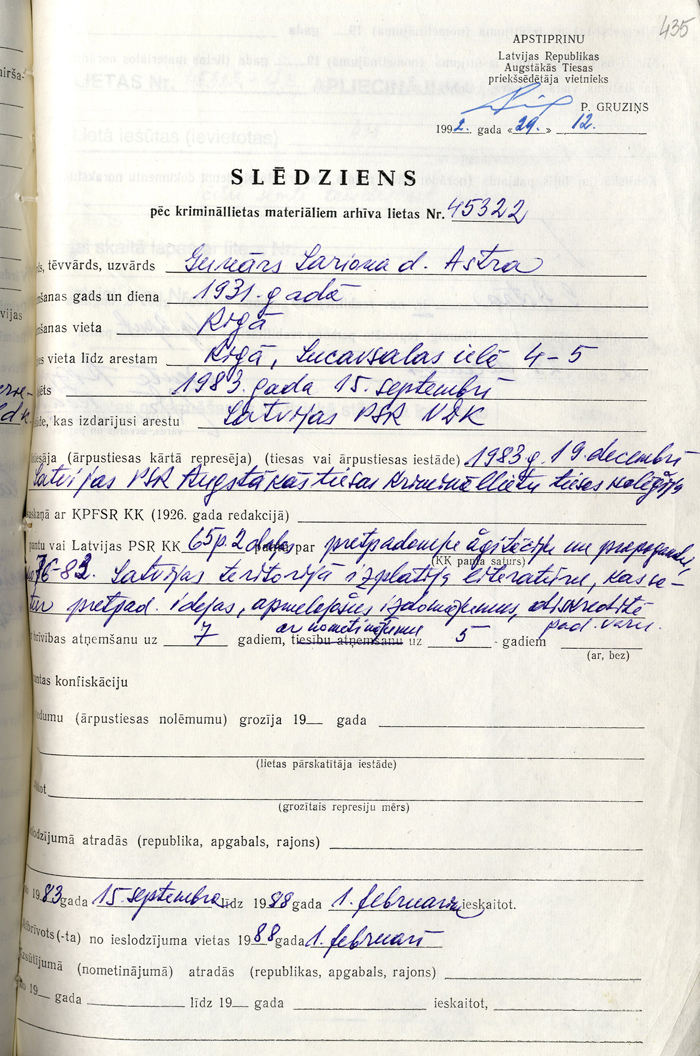 435
APSTIPRINU
Latvijas Republikas
Augstākās Tiesas
priekšsēdētāja vietnieks
P. GRUZIŅŠ
1992. gada «29.» 12.
SLĒDZIENS
pēc krimināllietas materiāliem arhīva lietas Nr. 45322
ds, tēvvārds, uzvārds Gunārs Lariona d. Astra
mšanas gads un diena 1931. gadā
mšanas vieta Rīgā
es vieta līdz arestam Rīgā, Lucavsalas ielā 4-5
ēts 1983. gada 15. septembrī
āde, kas izdarījusi arestu Latvijas PSR VDK
iesāja (ārpustiesas kārtā represēja) (tiesas vai ārpustiesas iestāde) 1983. g. 19. decembrī
Latvijas PSR Augstākās tiesas Krimināllietu tiesas kolēģija
askaņā ar KPFSR KK (1926. gada redakcijā)
pantu vai Latvijas PSR KK 65 p. 2 daļas par pretpadomju aģitāciju un propagandu,
(KK panta saturs)
76-83. Latvijas teritorijā izplatīja literatūru, kas
tur pretpad. idejas, apmelojošus izdomājumus, diskreditē
pad. varu.
brīvības atņemšanu uz 7 gadiem, ar nometinājumu tiesību atņemšanu uz 5 gadiem
(ar, bez)
antas konfiskāciju
edumu (ārpustiesas nolēmumu) grozīja 19 gada
(lietas pārskatītāja iestāde)
(grozītais represiju mērs)
slodzījumā atradās (republika, apgabals, rajons)
no 1983 gada 15. septembra līdz 1988 gada 1. februarim ieskaitot.
tbrīvots (-ta) no ieslodzījuma vietas 1988 gada 1. februarī
zsūtījumā (nometinājumā) atradās (republikas, apgabals, rajons)
no 19 gada līdz 19 gada ieskaitot,